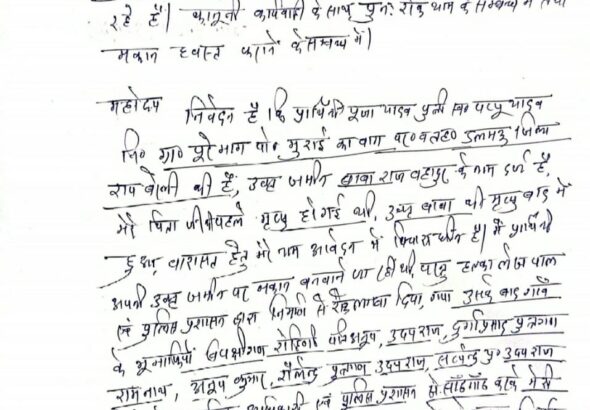 रहे है। कानूनी कार्यवाही के साथ पुनः रोक थाम के सम्बन्ध में तथा
मकान ध्वस्त कराने के सम्बन्ध में।
महोदय निवेदन है कि प्रार्थिनी पूजा यादव पुत्री स्व० पप्पू यादव
नि० ग्रा० पूरे भाग पो० मुराई का बाग था० व तह० डलमऊ जिला
राय बरेली की है, उक्त जमीन बाबा राज बहादुर के नाम दर्ज है,
मेरे पिता जी की पहले मृत्यु हो गई थी, उक्त बाबा की मृत्यु बाद में
हुआ, वारासत हेतु मेरे नाम आवेदन में विचाराधीन है। मैं प्रार्थिनी
अपनी उक्त जमीन पर मकान बनवाने जा रही थी परन्तु हल्का लेखपाल
एवं पुलिस प्रशासन द्वारा निर्माण से रोक लगवा दिया, गया उसके बाद गाँव
के भूमाफिया विपक्षीगण रोहिणी पति अनूप, उदयराज, दुर्गा प्रसाद पुत्रगण
रामनाथ, अनूप कुमार, शैलेन्द्र पुत्रगण उदयराज, सत्येन्द्र पु० उदयराज
एवं पुलिस प्रशासन से साँठगाँठ करके मेरी